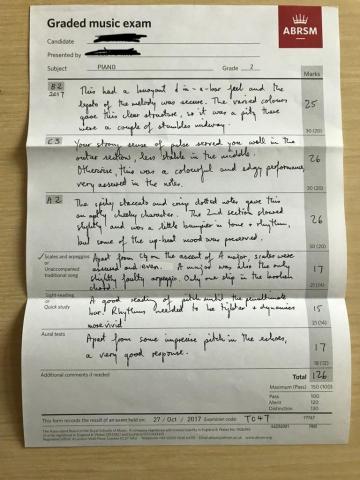 Graded music exam
ABRSM
Candidate
Presented by
Subject PIANO Grade 2
Marks
B2
2017
This had a buoyant d in-a-bar feel and the
legato of the melody was secure. The varied colours
gave this clear structure, so it was a pity there
were a couple of stumbles midway.
25
30 (20)
C3
Your strong sense of pulse served you well in the
outer sections, less stable in the middle.
Otherwise, this was a colourful and edgy performance,
very assured in the notes.
26
30 (20)
A2
The spiky staccato and crisp dotted notes gave this
an apt, cheeky character. The 2nd section slowed
slightly and was a little bumpier in tone & rhythm,
but some of the up-beat mood was preserved.
26
30 (20)
Scales and arpeggios
or
Unaccompanied
traditional song
Apart from C♮ on the ascent of A major, scales were
assured and even. A major was also the only
slightly faulty arpeggio. Only one slip in the broken
chord.
17
21 (14)
Sight-reading
or
Quick study
A good reading of pitch until the penultimate
bar. Rhythms needed to be tighter & dynamics
more vivid.
15
21 (14)
Aural tests
Apart from some imprecise pitch in the echoes,
a very good response.
17
18 (12)
Additional comments if needed
Total 126
Maximum (Pass) 150 (100)
Pass 100
Merit 120
Distinction 130
This form records the result of an exam held on 27/Oct/2017 Examiner code: TC47